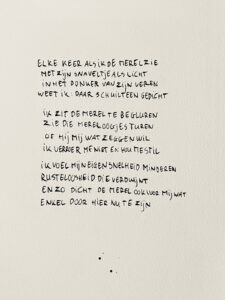 ELKE KEER ALS IK DE MEREL ZIE
MET ZIJN SNAVELTJE ALS LICHT
IN HET DONKER VAN ZIJN VEREN
WEET IK: DAAR SCHUILT EEN GEDICHT
IK ZIT DE MEREL TE BEGLUREN
ZIE DIE MERELOOGJES TUREN
OF HIJ MIJ WAT ZEGGEN WIL
IK VERROER ME NIET EN HOU ME STIL
IK VOEL MIJN EIGEN SNELHEID MINDEREN
RUSTELOOSHEID DIE VERDWIJNT
EN ZO DICHT DE MEREL OOK VOOR MIJ WAT
ENKEL DOOR HIER NU TE ZIJN